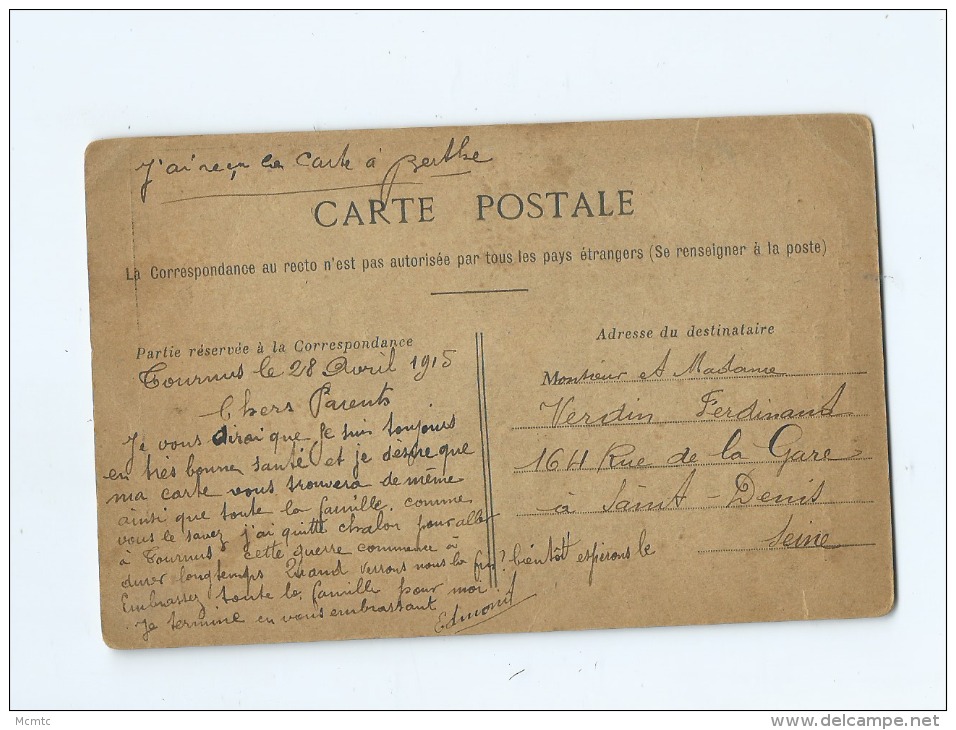 J'ai reçu la carte à Berthe
CARTE POSTALE
La Correspondance au recto n'est pas autorisée par tous les pays étrangers (Se renseigner à la poste)
Partie réservée à la Correspondance
Tournus le 28 Avril 1915
Chers Parents
Je vous dirai que je suis toujours
en très bonne santé et je désire que
ma carte vous trouvera de même
ainsi que toute la famille. comme
vous le savez j'ai quitté chalon pour aller
à Tournus cette guerre commence à
durer longtemps Quand verrons nous la fin? bientôt espérons le
Embrassez toute la famille pour moi
Je termine en vous embrassant
Edmond
Adresse du destinataire
Monsieur et Madame
Verdin Ferdinand
164 Rue de la Gare
à Saint-Denis
Seine
Mcmtc
www.delcampe.net